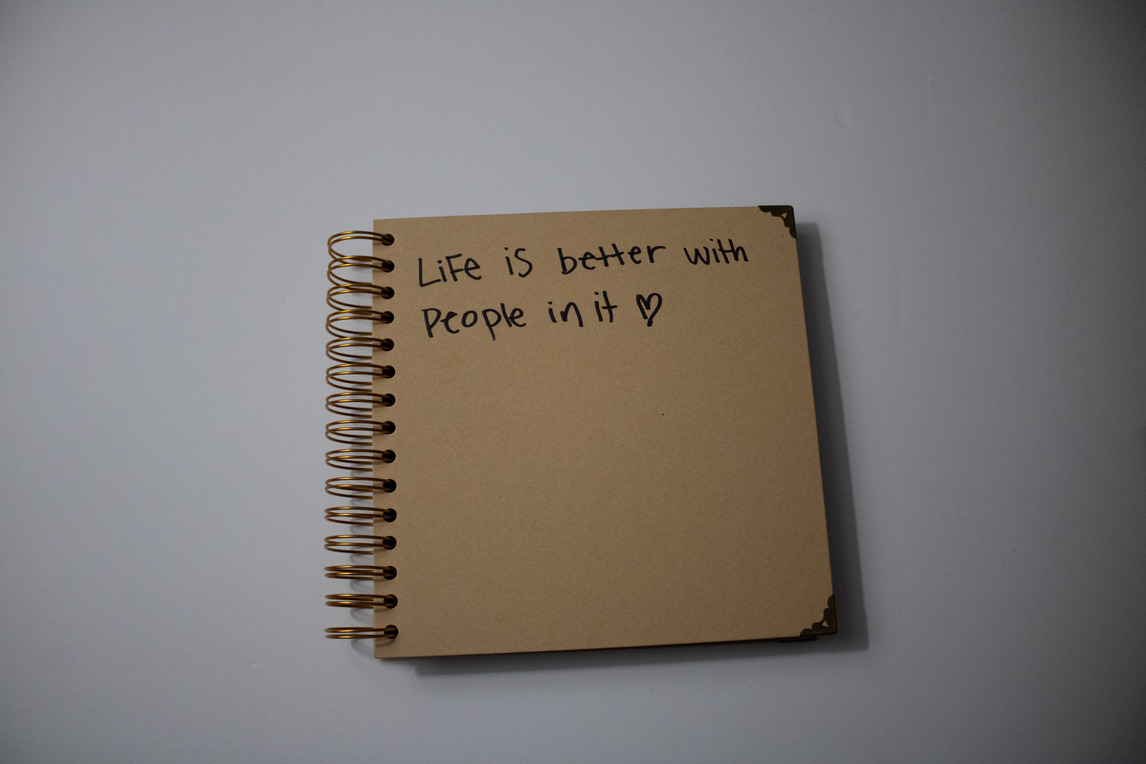 Life is better with
People in it ♡